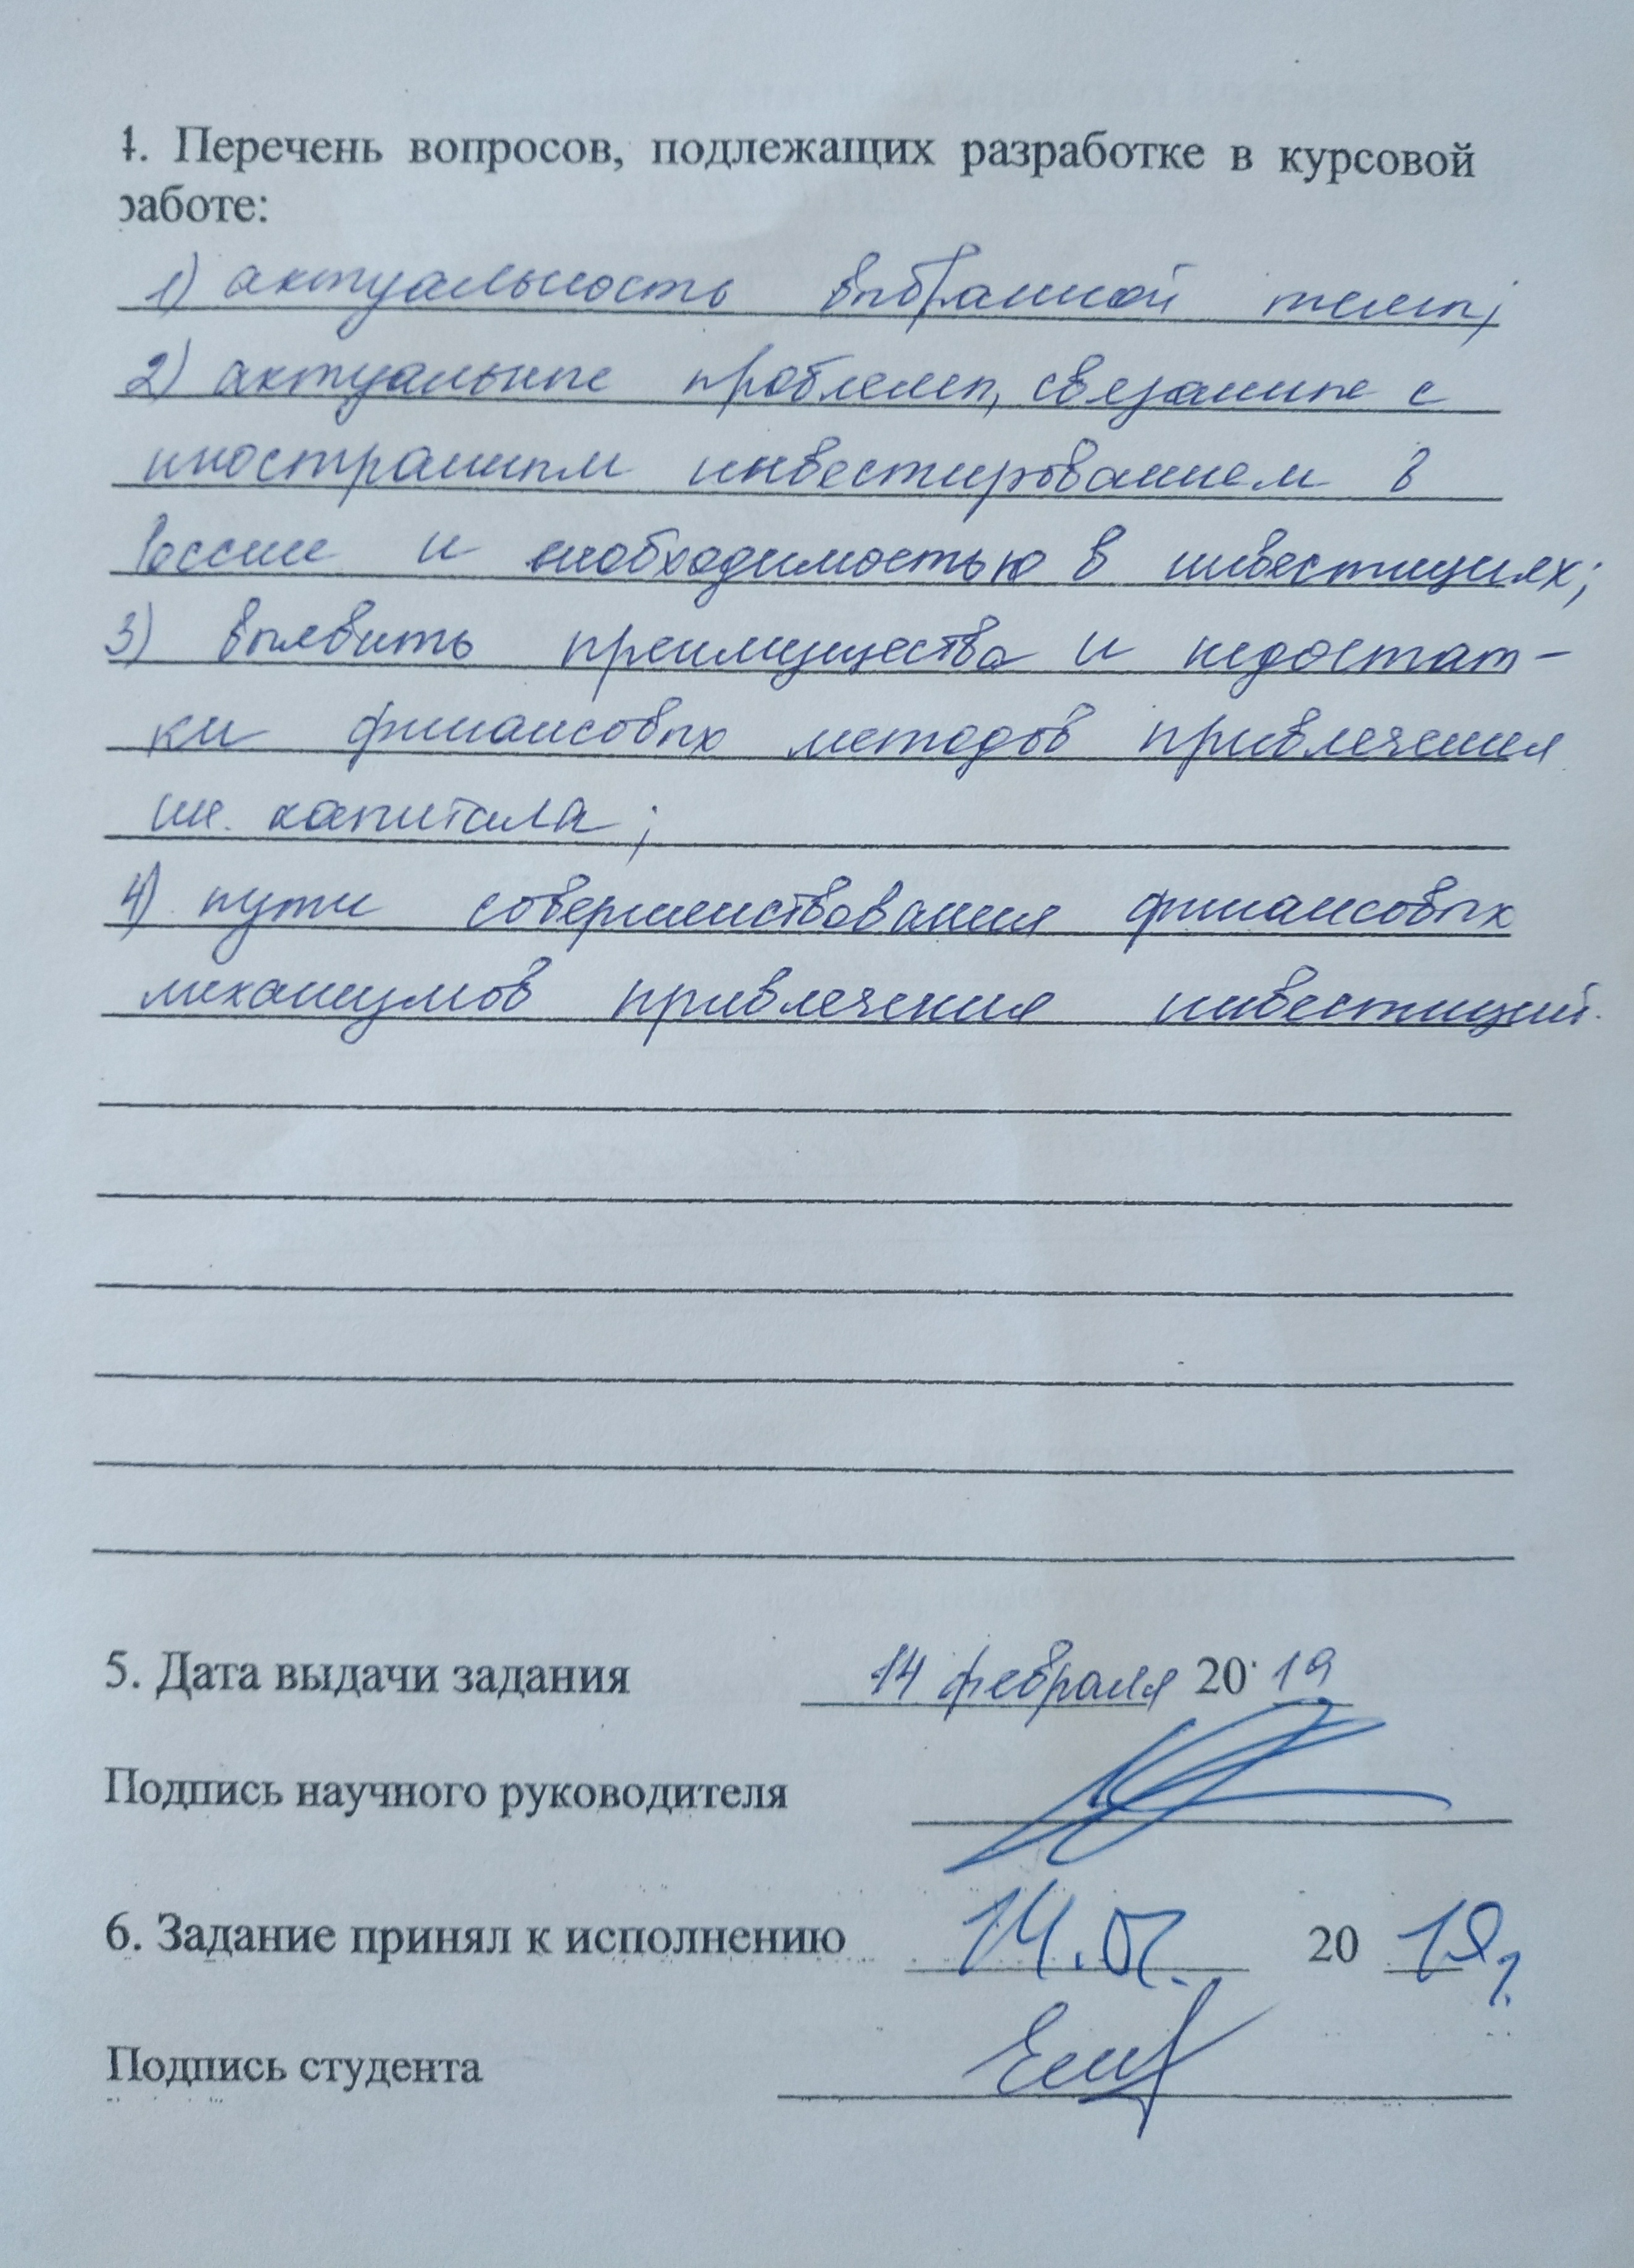 4. Перечень вопросов, подлежащих разработке в курсовой
работе:
1) актуальность выбранной темы;
2) актуальные проблемы, связанные с
иностранным инвестированием в
России и необходимостью в инвестициях;
3) выявить преимущества и недостат-
ки финансовых методов привлечения
ин. капитала;
4) пути совершенствования финансовых
механизмов привлечения инвестиций.
5. Дата выдачи задания 14 февраля 20 19
Подпись научного руководителя
6. Задание принял к исполнению 14.02. 20 19г.
Подпись студента